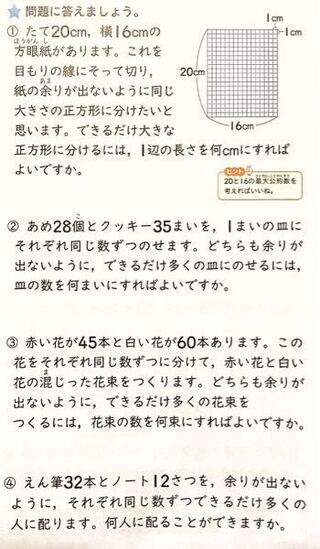 問題に答えましょう。
① たて20cm，横16cmの
方眼紙があります。これを
目もりの線にそって切り，
紙の余りが出ないように同じ
大きさの正方形に分けたいと
思います。できるだけ大きな
正方形に分けるには，1辺の長さを何cmにすれば
よいですか。
1cm
1cm
20cm
16cm
ヒント
20と16の最大公約数を
考えればいいね。
② あめ28個とクッキー35まいを，1まいの皿に
それぞれ同じ数ずつのせます。どちらも余りが
出ないように，できるだけ多くの皿にのせるには，
皿の数を何まいにすればよいですか。
③ 赤い花が45本と白い花が60本あります。この
花をそれぞれ同じ数ずつに分けて，赤い花と白い
花の混じった花束をつくります。どちらも余りが
出ないように，できるだけ多くの花束を
つくるには，花束の数を何束にすればよいですか。
④ えん筆32本とノート12さつを，余りが出ない
ように，それぞれ同じ数ずつできるだけ多くの
人に配ります。何人に配ることができますか。